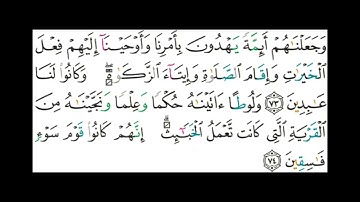 وَجَعَلْنَـٰهُمْ أَئِمَّةً يَهْدُونَ بِأَمْرِنَا وَأَوْحَيْنَآ إِلَيْهِمْ فِعْلَ
ٱلْخَيْرَٰتِ وَإِقَامَ ٱلصَّلَوٰةِ وَإِيتَآءَ ٱلزَّكَوٰةِ ۖ وَكَانُوا۟ لَنَا
عَـٰبِدِينَ ٧٣ وَلُوطًا ءَاتَيْنَـٰهُ حُكْمًا وَعِلْمًا وَنَجَّيْنَـٰهُ مِنَ
ٱلْقَرْيَةِ ٱلَّتِى كَانَت تَّعْمَلُ ٱلْخَبَـٰٓئِثَ ۗ إِنَّهُمْ كَانُوا۟ قَوْمَ سَوْءٍ
فَـٰسِقِينَ ٧٤